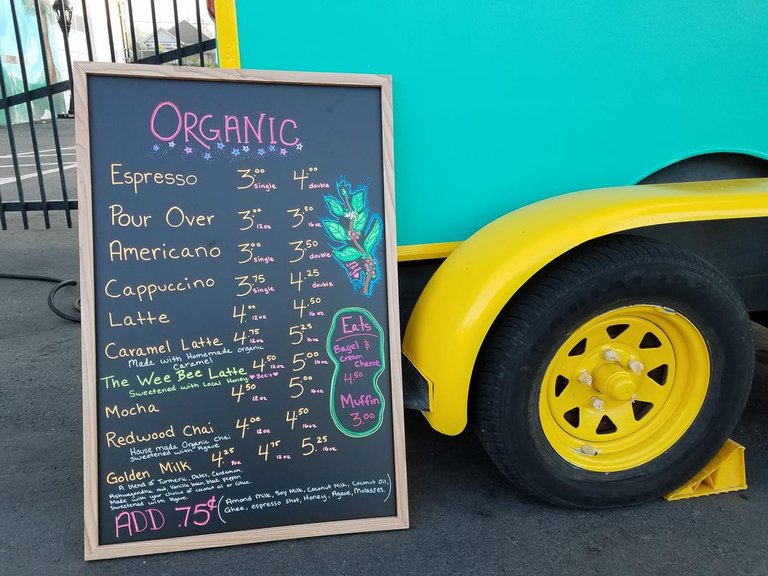 ORGANIC
Espresso 3.00 single 4.00 double
Pour Over 3.00 12oz 3.50 16oz
Americano 3.00 single 3.50 double
Cappuccino 3.75 single 4.25 double
Latte 4.00 12oz 4.50 16oz
Caramel Latte 4.75 12oz 5.25 16oz
Made with Homemade organic
Caramel
The Wee Bee Latte 4.50 12oz 5.00 16oz
Sweetened with Local Honey Bee's
Mocha 4.50 12oz 5.00 16oz
Redwood Chai 4.00 12oz 4.50 16oz
House made Organic chai
sweetened with Agave
Golden Milk 4.25 4.75 12oz 5.25 16oz
A blend of Turmeric, Dates, Cardamom,
Ashwagandha root, Vanilla bean, black pepper.
Made with your choice of coconut oil or Ghee.
Sweetened with Agave.
ADD .75¢ (Almond Milk, Soy Milk, Coconut Milk, Coconut Oil,
Ghee, espresso shot, Honey, Agave, Molasses.)
Eats
Bagel &
Cream
Cheese
4.50
Muffin
3.00